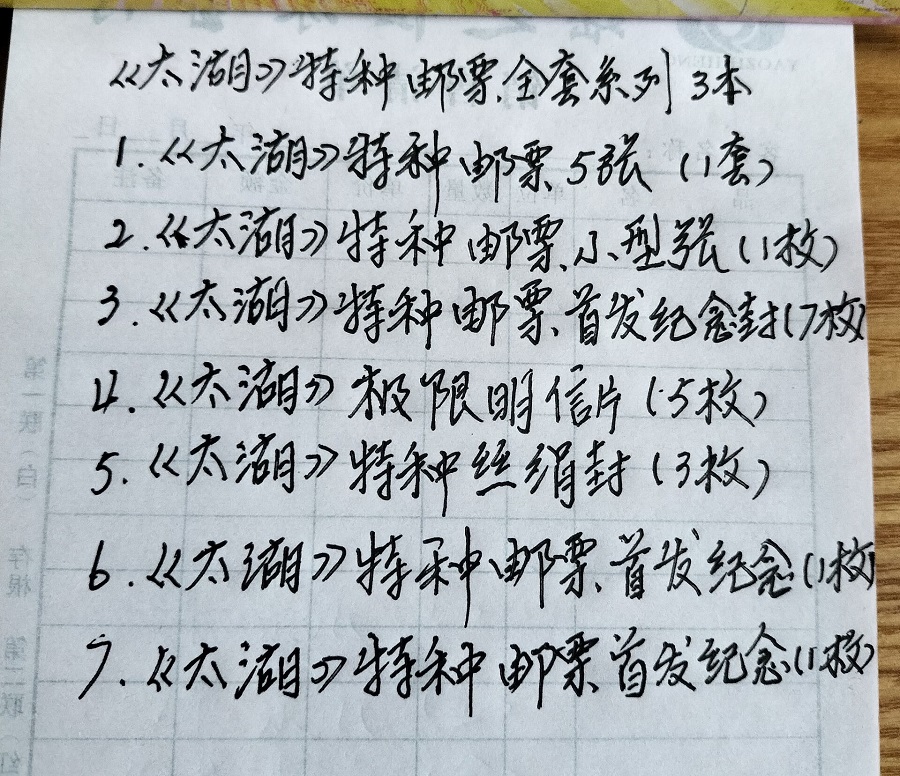 《太湖》特种邮票全套系列3本
1.《太湖》特种邮票5张(1套)
2.《太湖》特种邮票小型张(1枚)
3.《太湖》特种邮票首发纪念封(7枚)
4.《太湖》极限明信片(5枚)
5.《太湖》特种丝绢封(3枚)
6.《太湖》特种邮票首发纪念(1枚)
7.《太湖》特种邮票首发纪念(1枚)